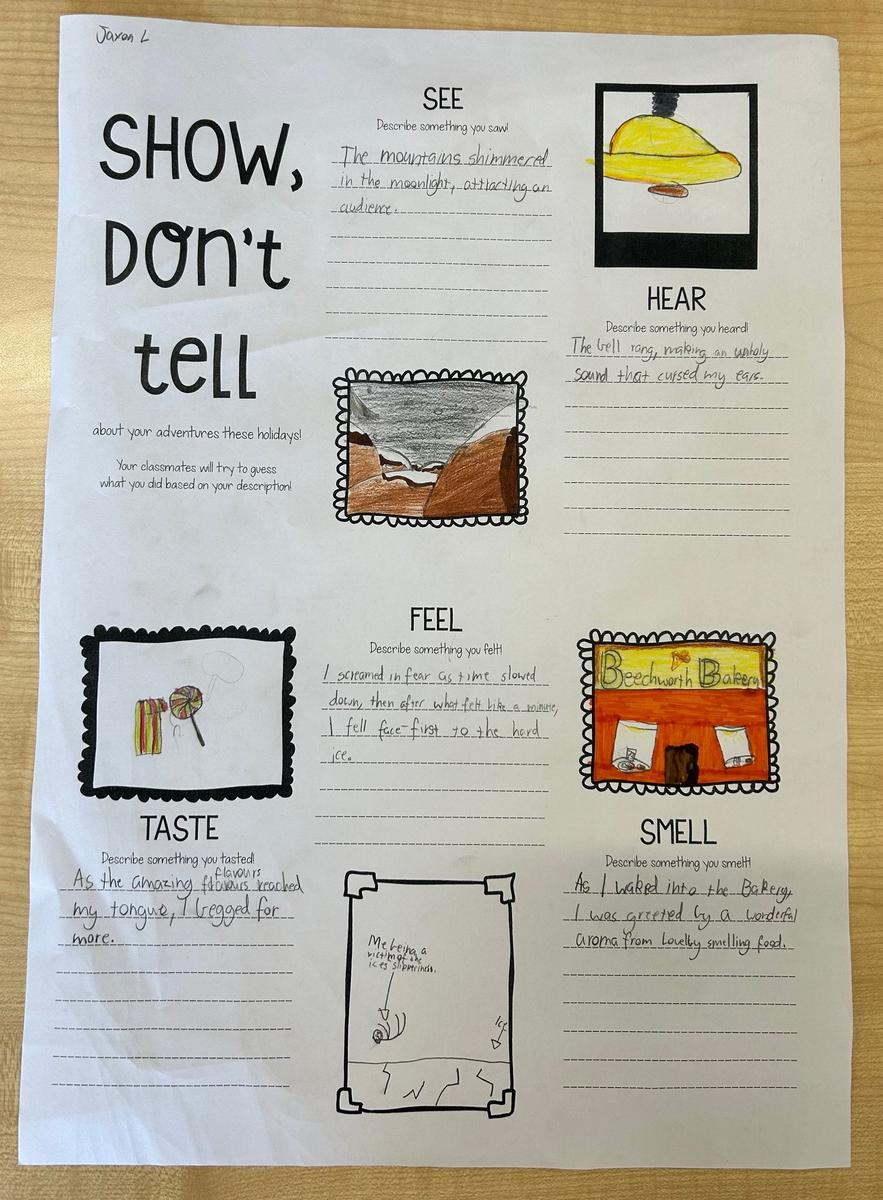 Jaxon L
SHOW,
DON't
tell
about your adventures these holidays!
Your classmates will try to guess
what you did based on your description!
SEE
Describe something you saw!
The mountains shimmered
in the moonlight, attracting an
audience.
HEAR
Describe something you heard!
The bell rang, making an unholy
sound that cursed my ears.
TASTE
Describe something you tasted!
flavours
As the amazing reached
my tongue, I begged for
more.
FEEL
Describe something you felt!
I screamed in fear as time slowed
down, then after what felt like a minute,
I fell face-first to the hard
ice.
Me being a
victim of the
ices slipperiness.
Ice
Beechworth Bakery
SMELL
Describe something you smelt!
As I walked into the Bakery,
I was greeted by a wonderful
aroma from lovelby smelling food.